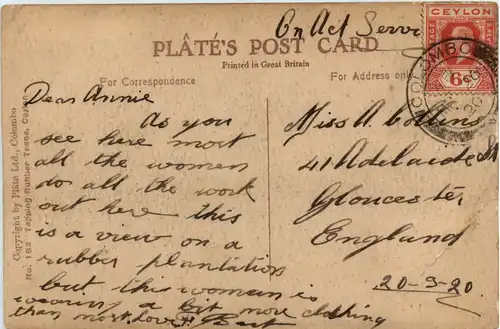 On Act Serv
CEYLON
6c
COLOMBO
PLÂTÉ'S POST CARD
Printed in Great Britain
For Correspondence
For Address only
Copyright by Plâté Ltd., Colombo
No. 182 Tapping Rubber Trees, Ceylon
Dear Annie
As you
see here most
all the women
do all the work
out here this
is a view on a
rubber plantation
but this woman is
wearing a bit more clothing
than most. Love Bert
Miss A. Collins
41 Adelaide St
Gloucester
England
20-9-20